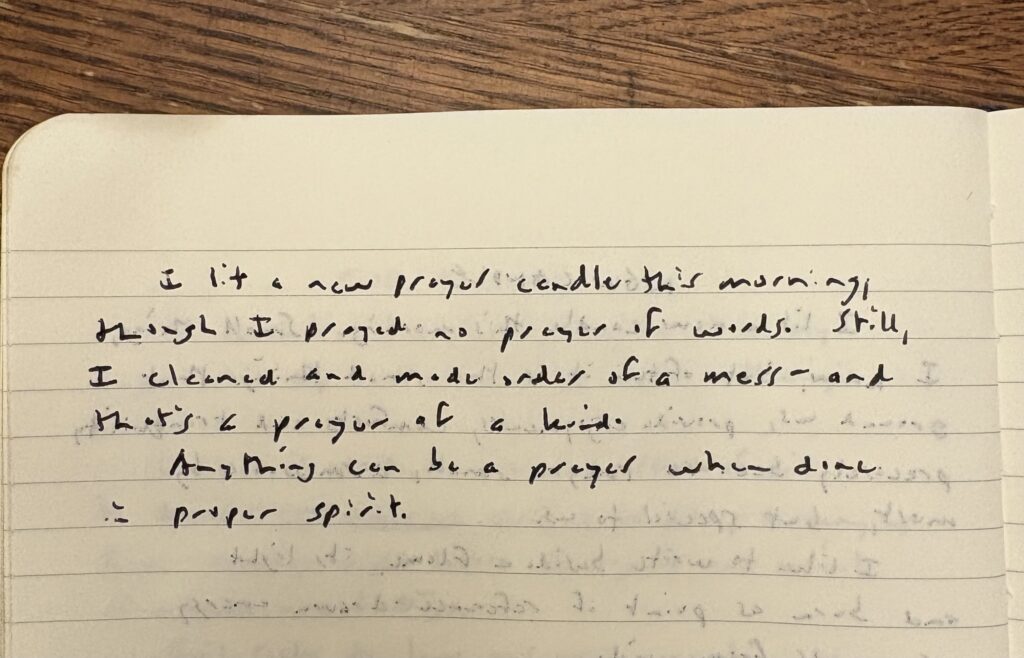 I lit a new prayer candle this morning,
though I prayed no prayer of words. Still,
I cleaned and made order of a mess - and
that's a prayer of a kind.
Anything can be a prayer when done
in proper spirit.